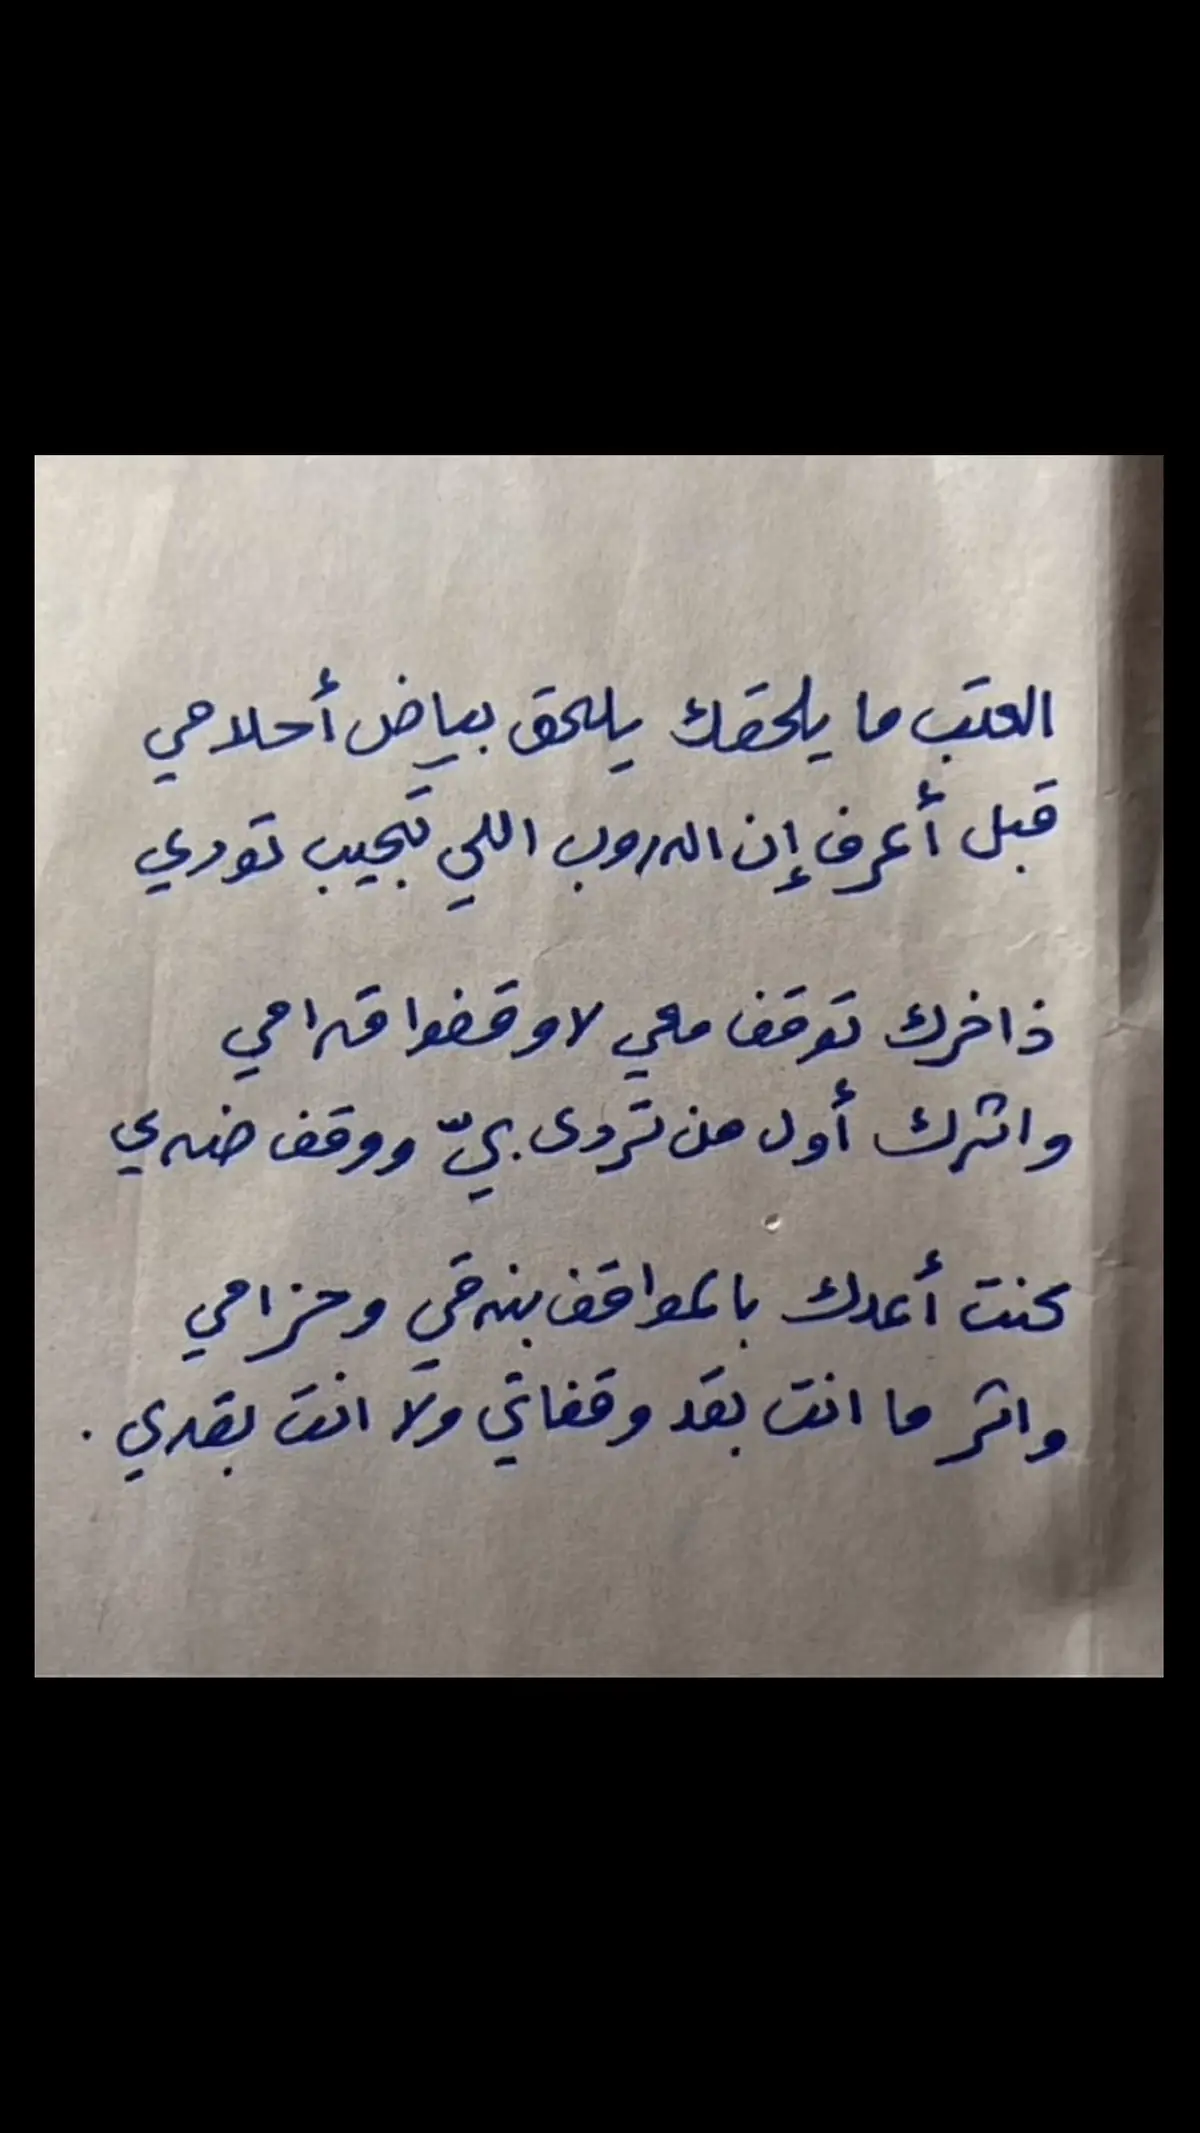 العتب ما يلحقك يلحق بياض أحلامي
قبل أعرف إن الدروب اللي تجيب تودي
ذاخرك توقف معي لاوقفوا قدامي
واثرك أول من تردى بيّ ووقف ضدي
كنت أعدك بالمواقف بندقي وحزامي
واثر ما انت بقد وقفاتي ولا انت بقدي .